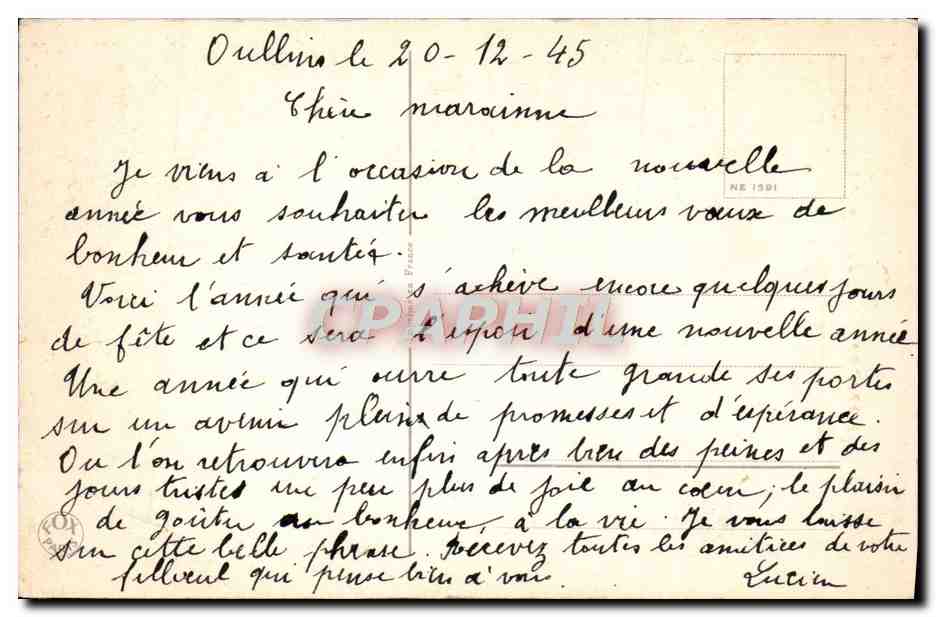 Oullins le 20-12-45
Chère marainne
NE 1591
Je viens à l'occasion de la nouvelle
année vous souhaiter les meilleurs vœux de
bonheur et santé.
Voici l'année qui s'achève encore quelques jours
de fête et ce sera l'espoir d'une nouvelle année
Une année qui ouvre toute grande ses portes
sur un avenir plein de promesses et d'espérance.
Ou l'on retrouvera enfin après bien des peines et des
jours tristes un peu plus de joie au cœur, le plaisir
de goûter au bonheur, à la vie. Je vous laisse
sur cette belle phrase. Recevez toutes les amitiées de votre
filleul qui pense bien à vous.
Lucien
CPAPHIL
FOX